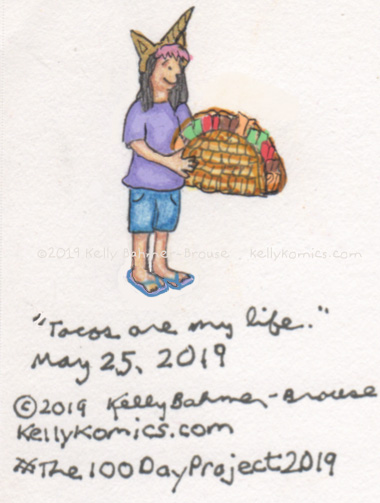 ©2019 Kelly Bahmer-Brouse . kellykomics.com
"Tacos are my life."
May 25, 2019
©2019 Kelly Bahmer-Brouse
KellyKomics.com
#The100DayProject2019